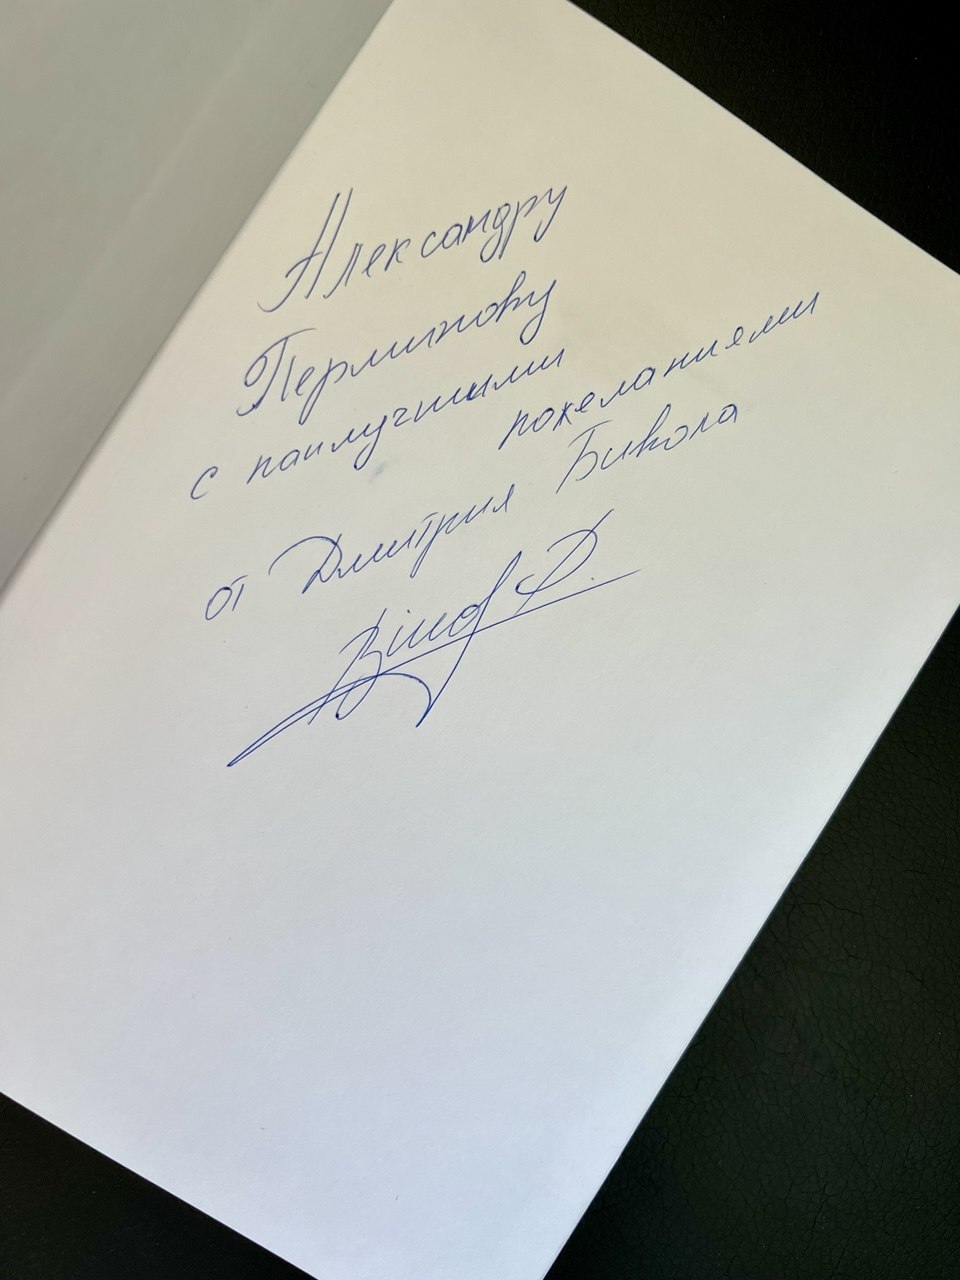 Александру
Перминову
с наилучшими
пожеланиями
от Дмитрия Бикола